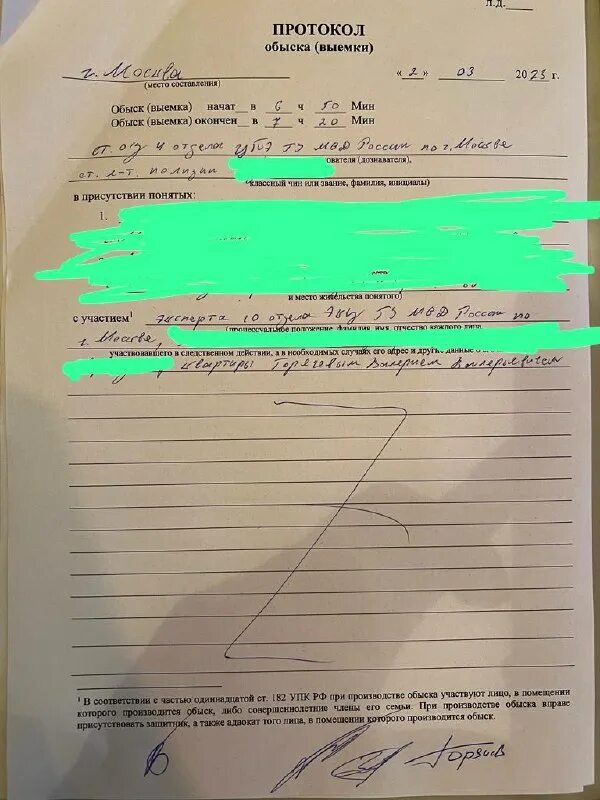 Л.Д.____
ПРОТОКОЛ
обыска (выемки)
г. Москва
(место составления)
« 2 » 03 2023 г.
Обыск (выемка) начат в 6 ч 50 Мин
Обыск (выемка) окончен в 7 ч 20 Мин
ст. о/у 4 отдела ГУ МВД России по г. Москве
ователя (дознавателя),
ст. л-т. полиции
классный чин или звание, фамилия, инициалы)
в присутствии понятых:
1.
и место жительства понятого)
с участием¹ эксперта 10 отдела ЭКЦ ГУ МВД России по
г. Москве,
(процессуальное положение, фамилия, имя, отчество каждого лица,
участвовавшего в следственном действии, а в необходимых случаях его адрес и другие данные о
квартиры Валерием Валерьевичем
¹ В соответствии с частью одиннадцатой ст. 182 УПК РФ при производстве обыска участвуют лицо, в помещении
которого производится обыск, либо совершеннолетние члены его семьи. При производстве обыска вправе
присутствовать защитник, а также адвокат того лица, в помещении которого производится обыск.